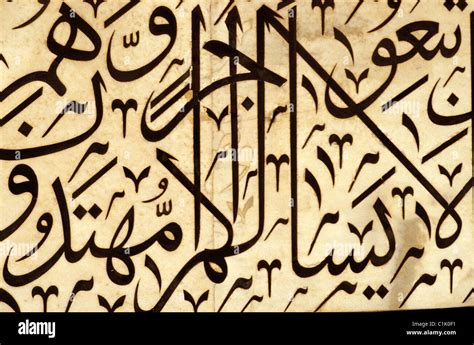 تبعوا من
لا يسالكم اجرا وّهم
مّهتدون
alamy
Image ID: C1K0F1
www.alamy.com